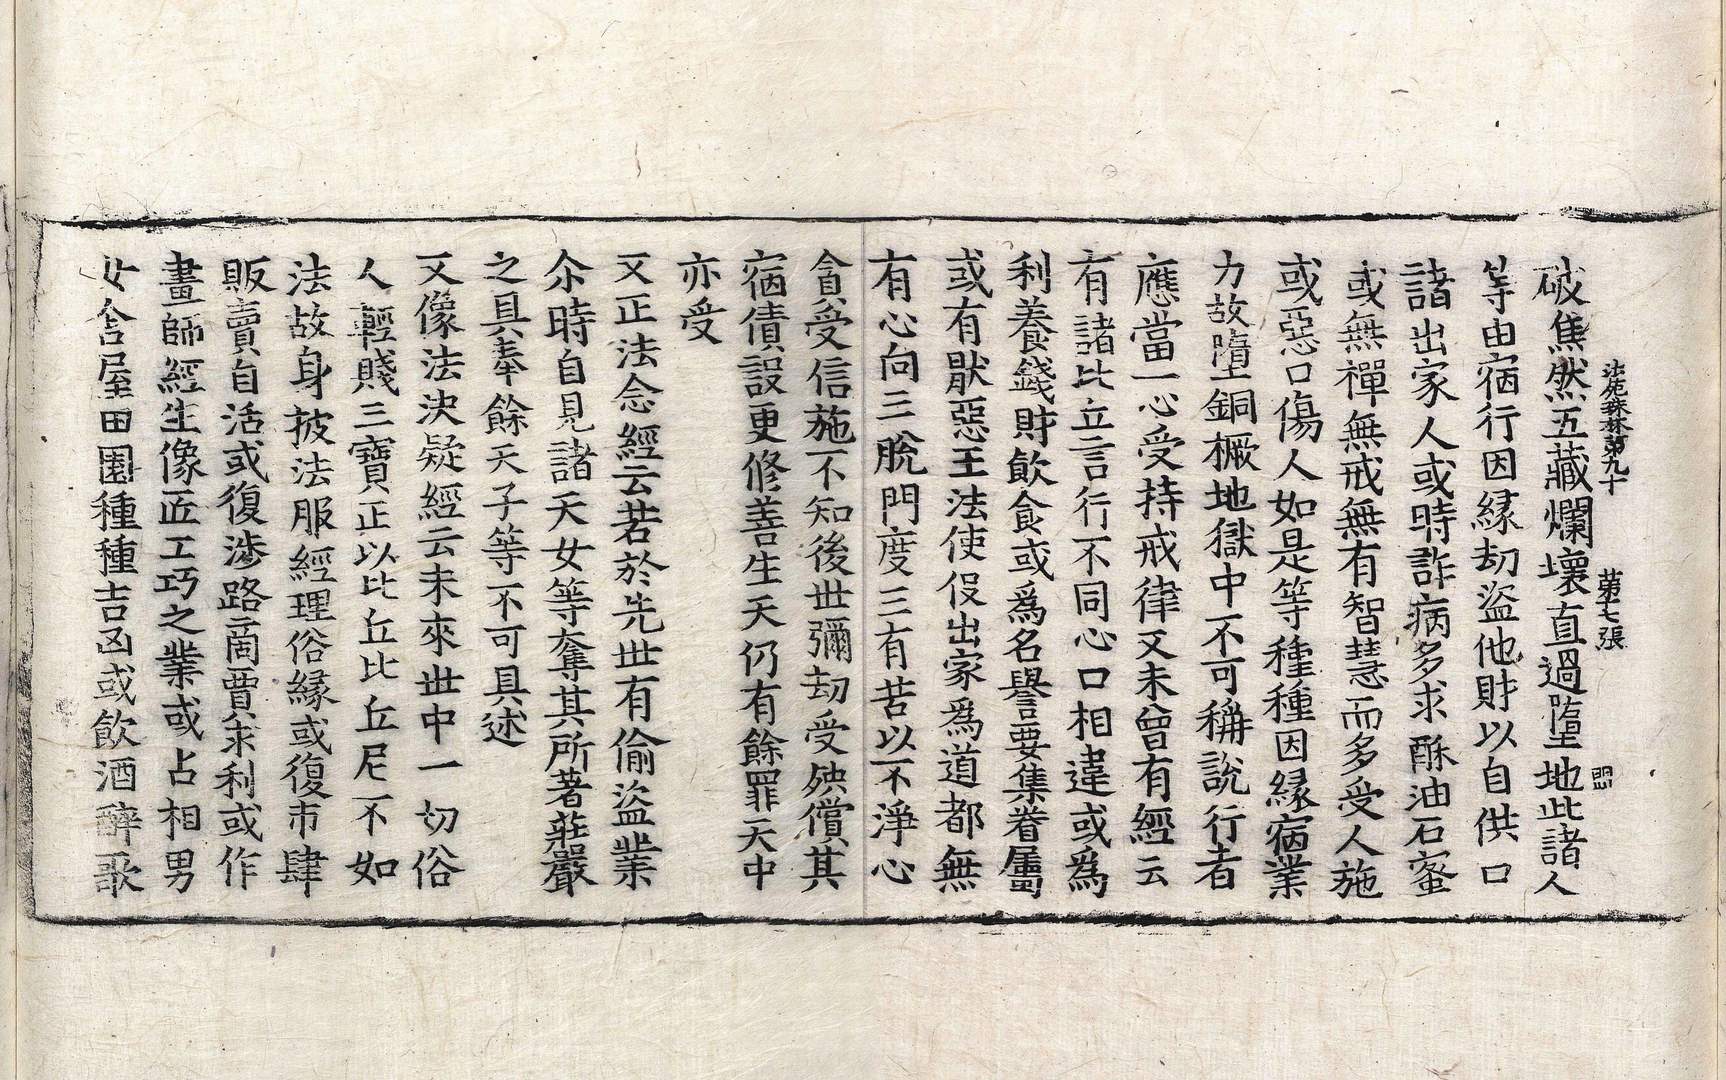 法苑珠林第九十 第七張 盟
破焦然五藏爛壞直過墮地此諸人
等由宿行因縁劫盜他財以自供口
諸出家人或時詐病多求酥油石蜜
或無禪無戒無有智慧而多受人施
或惡口傷人如是等種種因縁宿業
力故墮銅橛地獄中不可稱說行者
應當一心受持戒律又未曾有經云
有諸比丘言行不同心口相違或爲
利養錢財飮食或爲名譽要集眷屬
或有厭惡王法使役出家爲道都無
有心向三脫門度三有苦以不淨心
貪受信施不知後世彌劫受殃償其
宿債設更修善生天仍有餘罪天中
亦受
又正法念經云若於先世有偷盜業
尒時自見諸天女等奪其所著莊嚴
之具奉餘天子等不可具述
又像法決疑經云未來世中一切俗
人輕賤三寶正以比丘比丘尼不如
法故身披法服經理俗縁或復市肆
販賣自活或復涉路商賈求利或作
畫師經生像匠工巧之業或占相男
女舍屋田園種種吉凶或飮酒醉歌